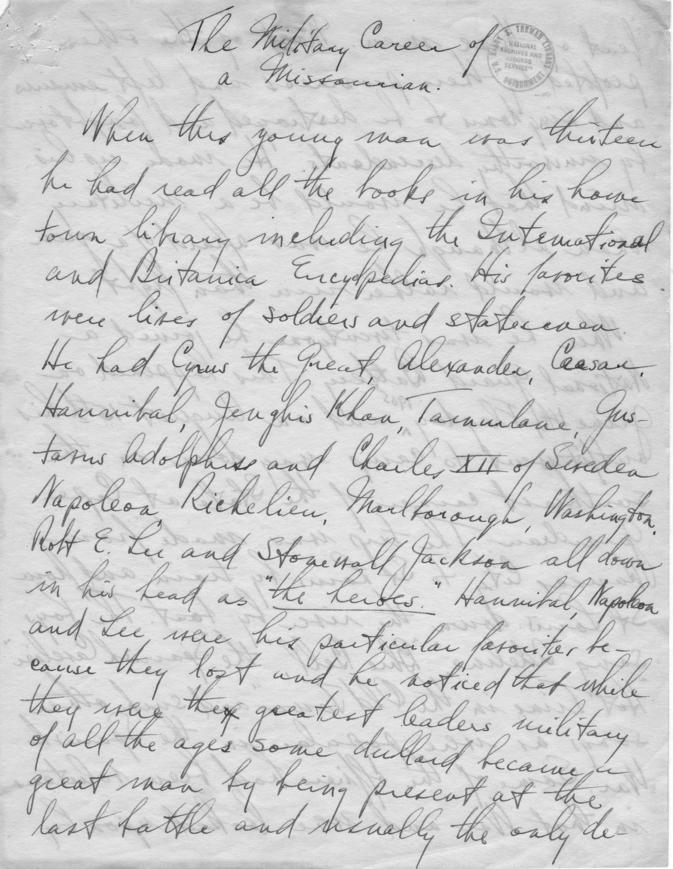 The Military Career of
a Missourian.
HARRY S. TRUMAN LIBRARY
"NATIONAL
ARCHIVES AND
RECORDS
SERVICE"
U.S. GOVERNMENT
When this young man was thirteen
he had read all the books in his home
town library including the International
and Britanica Encyclpedias. His favorites
were lives of soldiers and statesmen.
He had Cyrus the Great, Alexander, Ceasar,
Hannibal, Jenghis Khan, Tammulane, Gus-
tavus Adolphus and Charles XII of Sweden
Napoleon, Richelieu, Marlborough, Washington,
Robt E. Lee and Stonewall Jackson all down
in his head as "the heroes." Hannibal, Napoleon
and Lee were his particular favorites be-
cause they lost and he noticed that while
they were the greatest leaders military
of all the ages some dullard became a
great man by being present at the
last battle and usually the only de-